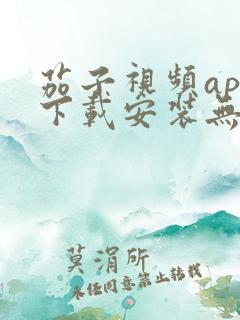 茄子視頻ap
下載安裝無
莫涓所
未经同意禁止转载